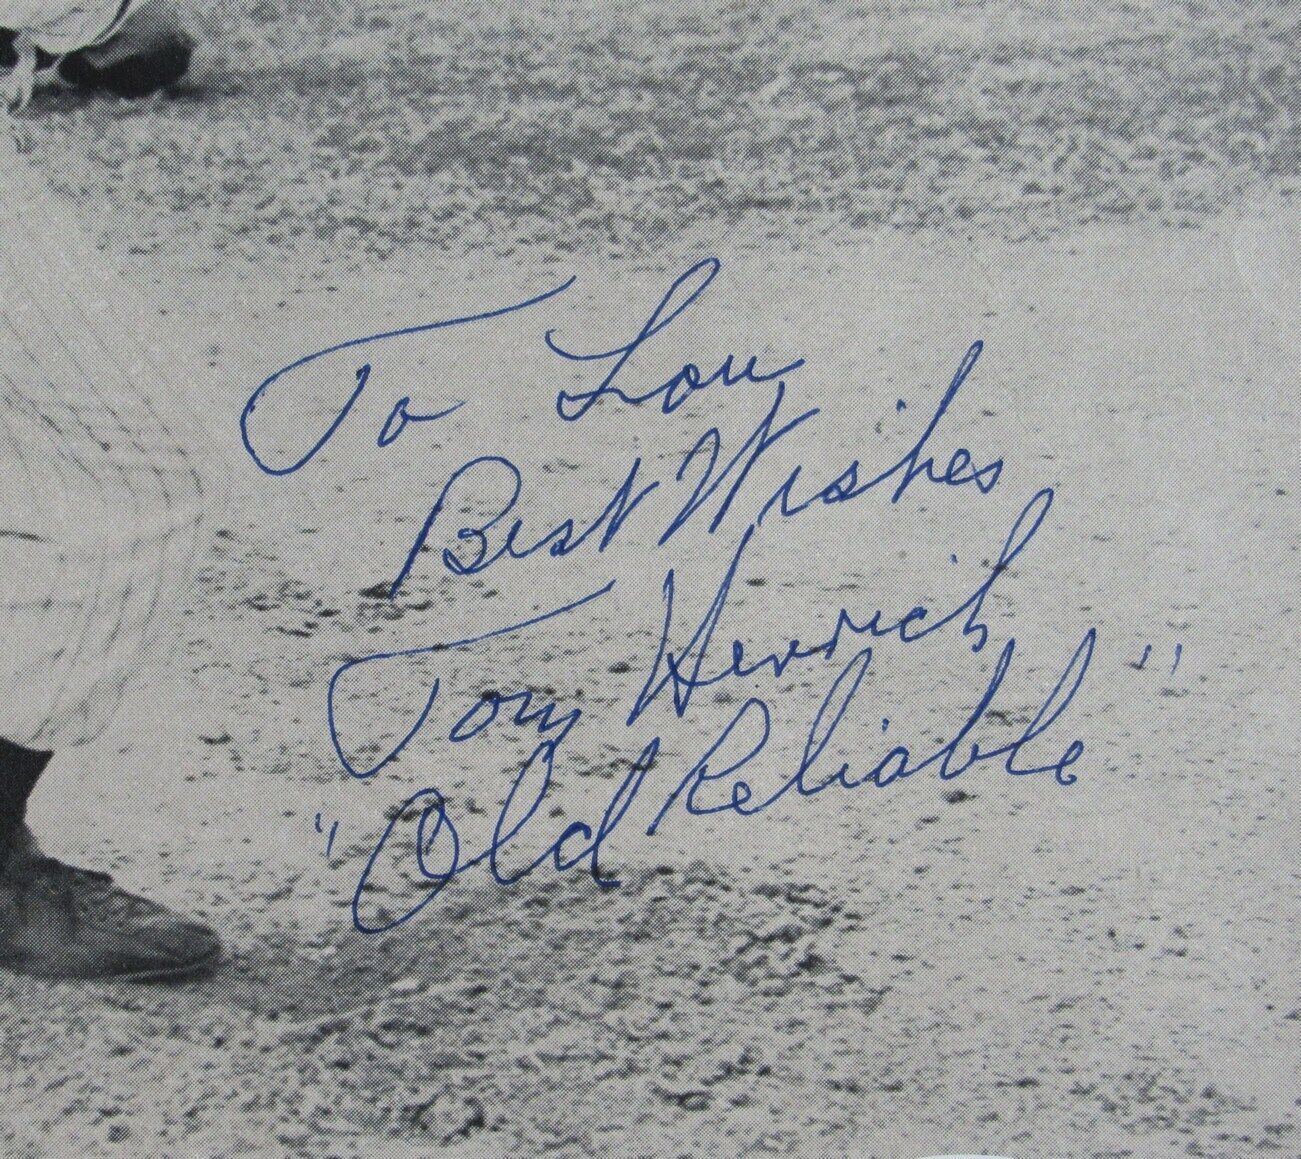 To Lou
Best Wishes
Tommy Henrich
"Old Reliable"